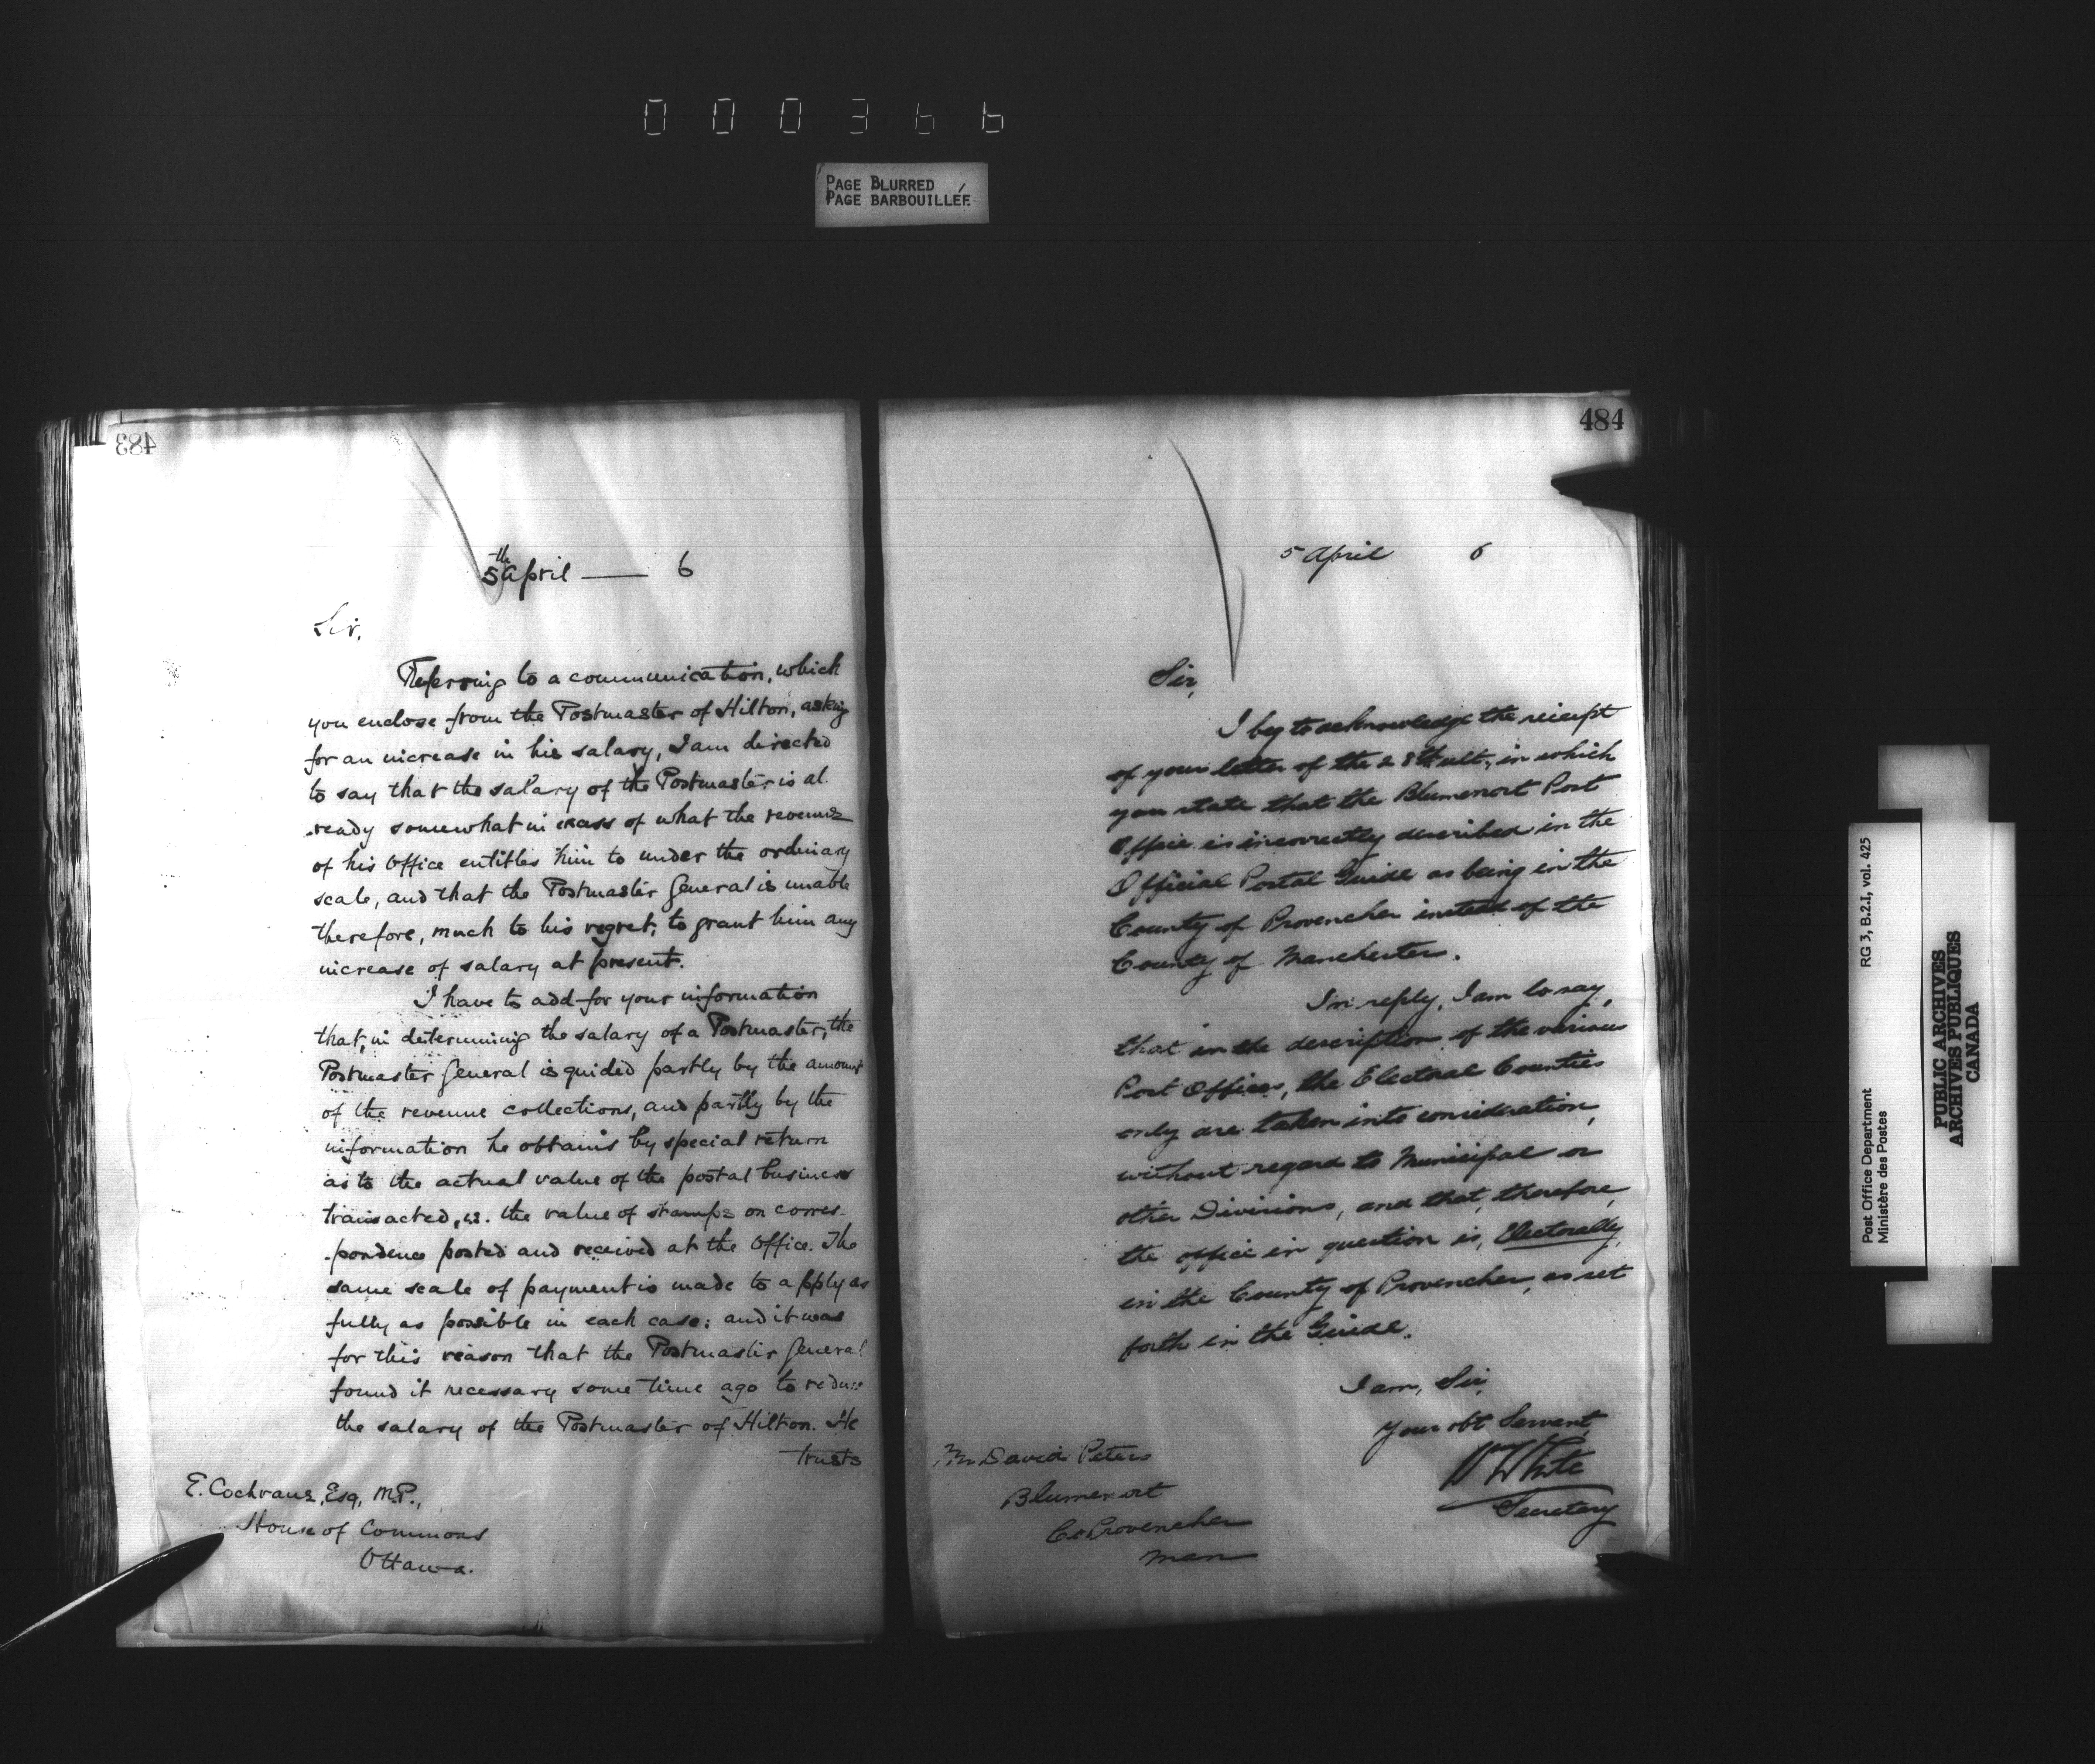 000366
PAGE BLURRED
PAGE BARBOUILLÉE
483
5th April — 6
Sir,
Referring to a communication, which
you enclose from the Postmaster of Hilton, asking
for an increase in his salary, I am directed
to say that the salary of the Postmaster is al-
ready somewhat in excess of what the revenue
of his Office entitles him to under the ordinary
scale, and that the Postmaster General is unable
therefore, much to his regret, to grant him any
increase of salary at present.
I have to add for your information
that, in determining the salary of a Postmaster, the
Postmaster General is guided partly by the amount
of the revenue collections, and partly by the
information he obtains by special return
as to the actual value of the postal business
transacted, i.e. the value of stamps on corres-
pondence posted and received at the Office. The
same scale of payment is made to apply as
fully as possible in each case: and it was
for this reason that the Postmaster General
found it necessary some time ago to reduce
the salary of the Postmaster of Hilton. He
trusts
E. Cochrane, Esq, M.P.,
House of Commons
Ottawa.
484
5 April 6
Sir,
I beg to acknowledge the receipt
of your letter of the 28th ult., in which
you state that the Blumenort Post
Office is incorrectly described in the
Official Postal Guide as being in the
County of Provencher instead of the
County of Manchester.
In reply, I am to say,
that in the description of the various
Post Offices, the Electoral Counties
only are taken into consideration,
without regard to Municipal or
other Divisions, and that, therefore,
the office in question is, Electorally,
in the County of Provencher, as set
forth in the Guide.
I am, Sir,
Your obt Servant,
Wm White
Secretary
Mr David Peters
Blumenort
Co Provencher
Man
Post Office Department
Ministère des Postes
RG 3, B.2.I, vol. 425
PUBLIC ARCHIVES
ARCHIVES PUBLIQUES
CANADA